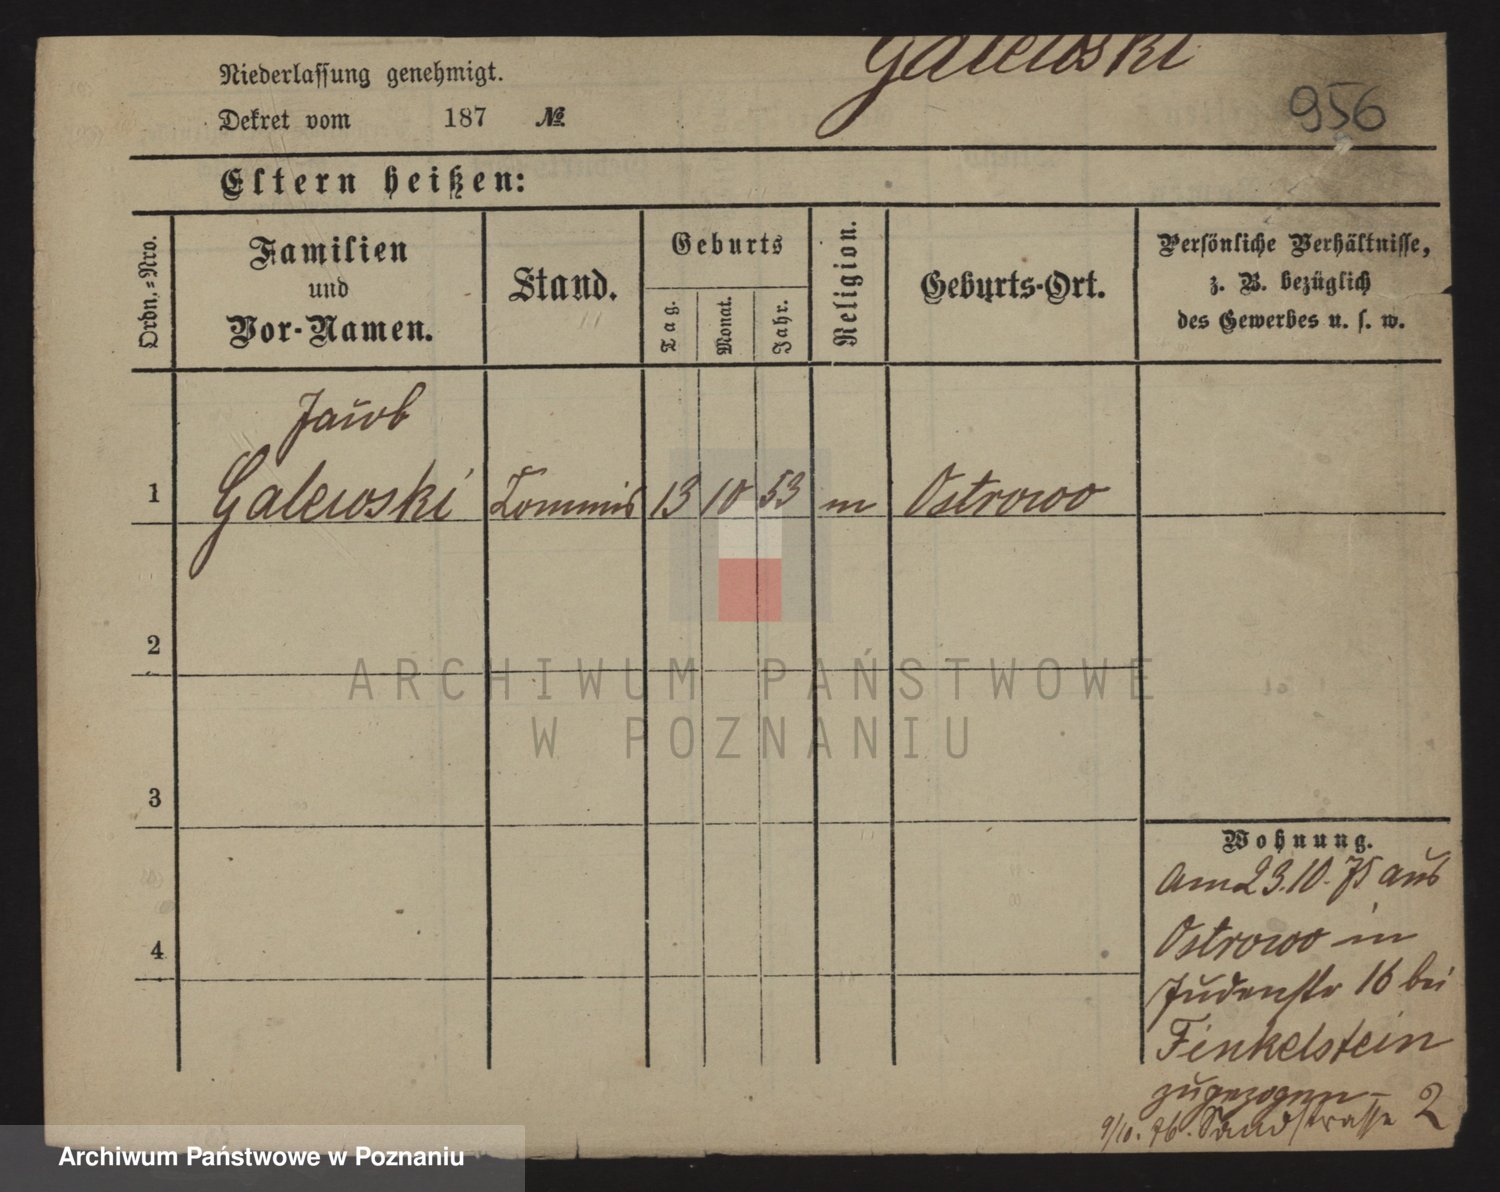 Galewski
956
Niederlassung genehmigt.
Dekret vom 187 №
Eltern heißen:
Ordn.-Nro.
Familien
und
Vor-Namen.
Stand.
Geburts
Tag.
Monat.
Jahr.
Religion.
Geburts-Ort.
Persönliche Verhältnisse,
z. B. bezüglich
des Gewerbes u. s. w.
Jacob
1 Galewski Commis 13 10 53 m Ostrowo
2
3
4
Wohnung.
Am 23.10.75 aus
Ostrowo in
Judenstr 16 bei
Finkelstein
zugezogen –
9/10. 76. Sandstrasse 2
ARCHIWUM PAŃSTWOWE
W POZNANIU
Archiwum Państwowe w Poznaniu